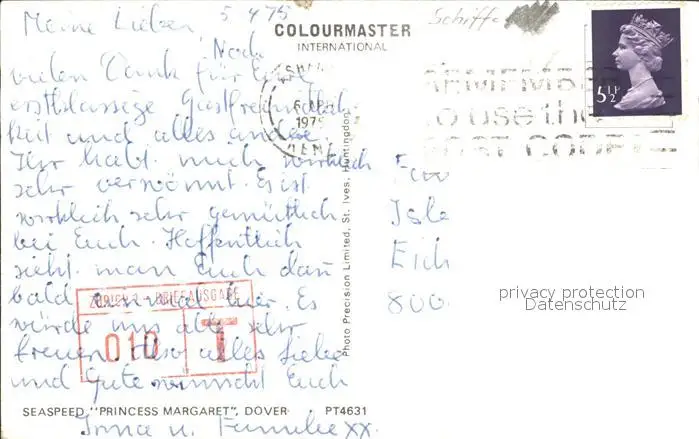 5 4 75
Meine Lieben, Noch
vielen Dank für Eure
erstklassige Gastfreundlich
keit und alles andere
Ihr habt mich wirklich
sehr verwöhnt. Es ist
wirklich sehr gemütlich
bei Euch. Hoffentlich
sieht man Euch dan
bald einmal hier. Es
würde uns alle sehr
freuen. Also alles Liebe
und Gute wünscht Euch
Irma u. Familie xx.
SEASPEED "PRINCESS MARGARET", DOVER PT4631
COLOURMASTER
INTERNATIONAL
Photo Precision Limited, St. Ives, Huntingdon
Schiffe
5½P
APR
1975
KENT
REMEMBER
to use the
POST CODE
ZÜRICH BRIEFAUSGABE
010 T
Isle
Eich
800
privacy protection
Datenschutz